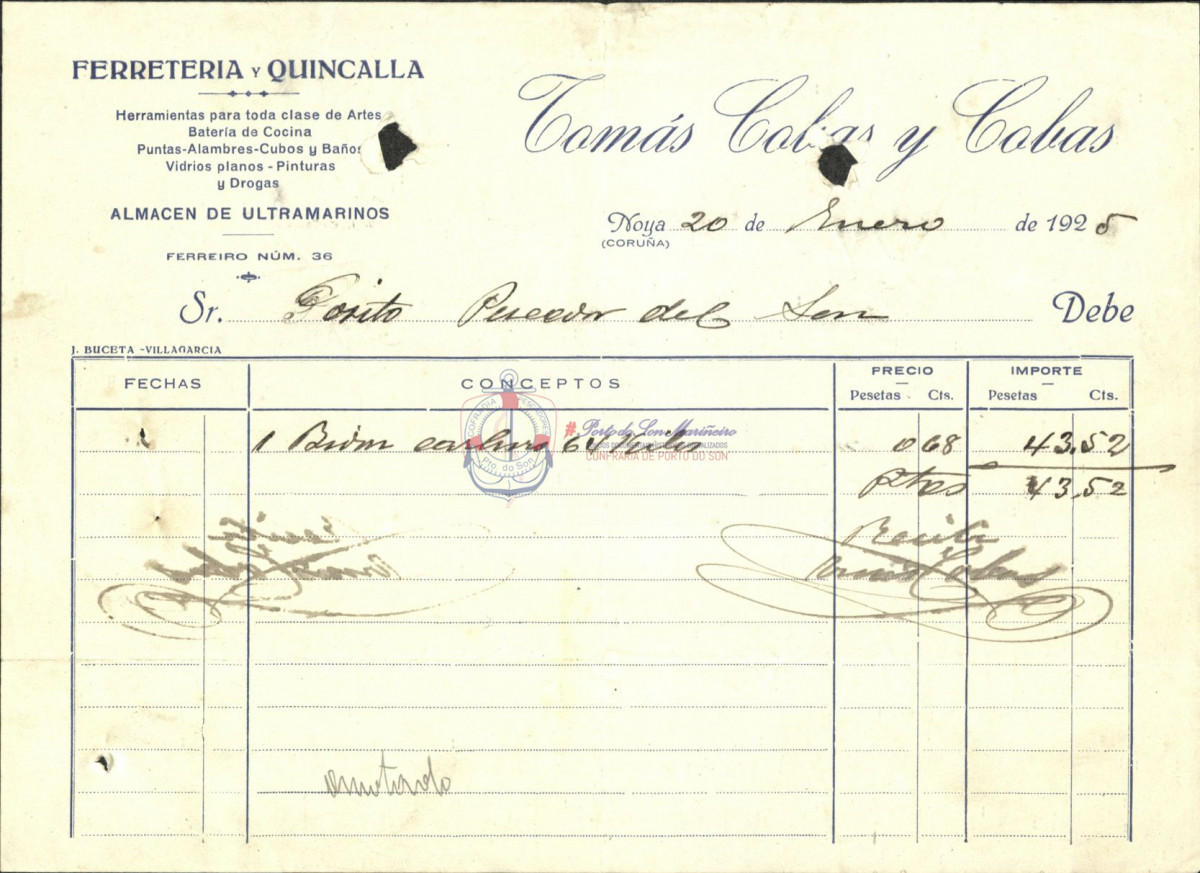 FERRETERIA Y QUINCALLA
Herramientas para toda clase de Artes
Batería de Cocina
Puntas-Alambres-Cubos y Baños
Vidrios planos - Pinturas
y Drogas
ALMACEN DE ULTRAMARINOS
FERREIRO NÚM. 36
Tomás Cobas y Cobas
Noya 20 de Enero de 1925
(CORUÑA)
Sr. Posito Pescador del Son Debe
J. BUCETA -VILLAGARCIA
FECHAS CONCEPTOS PRECIO IMPORTE
Pesetas Cts. Pesetas Cts.
1 Bidon carburo 64 kilos 0 68 43,52
Ptas 43,52
# Porto do Son Mariñeiro
CONFRARÍA DE PORTO DO SON
COFRADIA PESCADORES
Pto. do Son
Recibí
Tomás Cobas
anotado